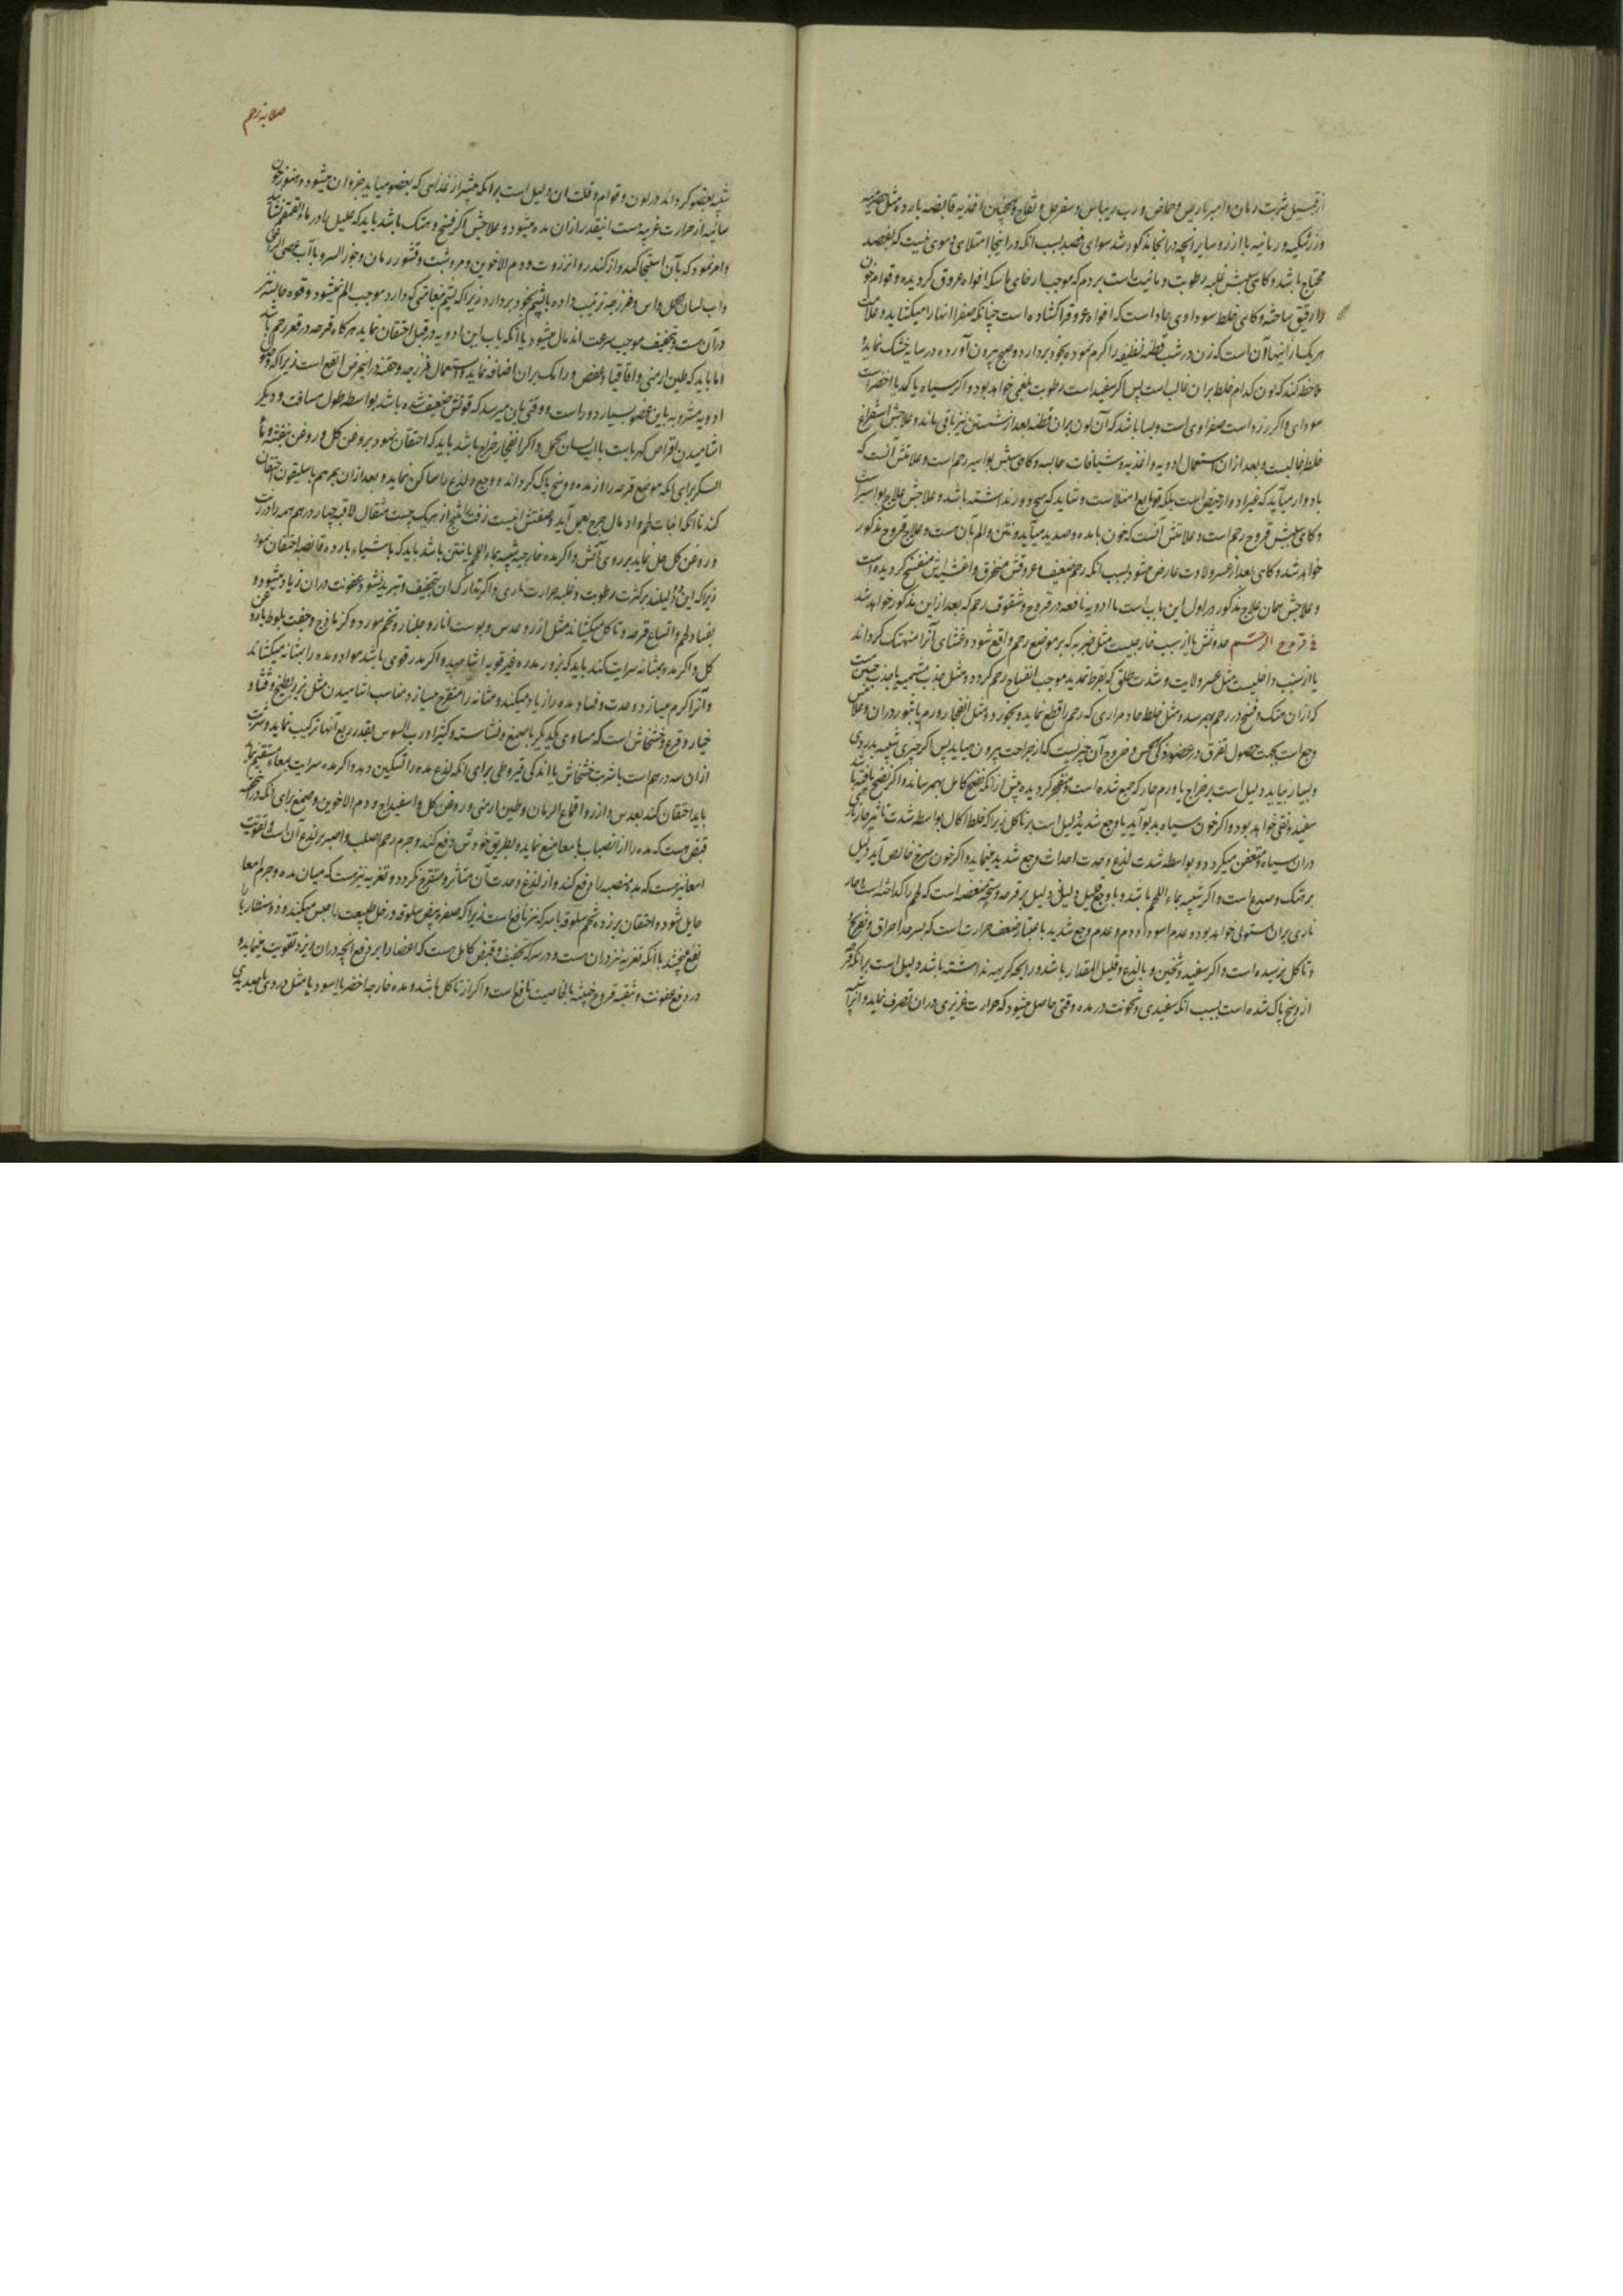 از قبیل شربت رمان و امبرباریس و حماض و رب ریباس و سفرجل و تفاح و همچنان اغذیه قابضه بارده مثل حصرمیه
و زرشکیه و رمانیه با ارز و سایر آنچه در انجا مذکور شد سوای فصد بسبب انکه در اینجا امتلای دموی نیست که بفصد
محتاج باشد و کاهی سببش غلبه رطوبت و مائیت است بر دم که موجب ارخای ماسکه افواه عروق کردیده و قوام خون
را رقیق ساخته و کاهی خلط سوداوی حاد است که افواه عروق را کشاده است چنانکه صفرا انها را میکشاید و علامت
هر یک از اینها آن است که زن در شب قطنه نظیفه را کرم نموده بخود بردارد و صبح بیرون آورده در سایه خشک نماید و
ملاحظه کند که لون کدام خلط بران غالب است پس اکر سفید است رطوبت بلغمی خواهد بود و اکر سیاه یا کمد یا اخضر است
سودای و اکر زرد است صفراوی است و بسا باشد که آن لون بران قطنه بعد از شستن نیز باقی ماند و علاجش استفراغ
خلط غالبست و بعد از ان استعمال ادویه و اغذیه و شیافات حابسه و کاهی سببش بواسیر رحم است و علامتش آنست که
بادوار میآید که غیر ادوار حیض است بلکه تابع امتلاست و شاید که هیچ دور نداشته باشد و علاجش علاج بواسیر است
و کاهی سببش قروح رحم است و علامتش آنست که خون با مده و صدید میآید و نتن و الم بآن هست و علاج قروح مذکور
خواهد شد و کاهی بعد از عسر ولادت عارض میشود بسبب انکه رحم ضعیف و عروقش منخرق و اغشیه‌اش منفسخ کردیده است
و علاجش همان علاج مذکور در اول این باب است با ادویه نافعه در قروح و شقوق رحم که بعد از این مذکور خواهد شد
فی قروح الرحم حدوثش یا از سبب خارجیست مثل ضربه که بر موضع رحم واقع شود و غشای آنرا منهتک کرداند
یا از سبب داخلیست مثل عسر ولادت و شدت طلق که بفرط تمدید موجب انفساخ رحم کردد و مثل جذب مشیمه یا جذب جنین میت
که از ان هتک و فسخ در رحم بهم رسد و مثل خلط حاد مراری که رحم را قطع نماید و بخورد و مثل انفجار ورم یا بثور در ان و علامتش
وجع است بجهت حصول تفرق در عضو ذکی الحس و خروج آن چیزیست که از جراحت بیرون میآید پس اکر چیزی شبیه بدردی
و بسیار بیاید دلیل است بر خراج یا ورم حار که جمع شده است و منفجر کردیده پیش از انکه نضج کامل بهم رساند و اکر نضج یافته باشد
سفید و نقی خواهد بود و اکر خون سیاه بدبو آید با وجع شدید دلیل است بر تاکل زیرا که خلط اکال بواسطه شدت تاثیر حار نار
در ان سیاه و متعفن میکردد و بواسطه شدت لذع و حدت احداث وجع شدید مینماید و اکر خون سرخ خالص آید دلیل
بر هتک و صدع است و اکر شبیه بماء اللحم باشد و با وجع قلیل دلیل بر قرحه وسخه متعفنه است که لحم را کداخته است و حار
ناری بران مستولی خواهد بود و عدم اسوداد دم و عدم وجع شدید باعتبار ضعف حرارت است که بسر حد احراق و تقریح
و تاکل نرسیده است و اکر سفید و ثخین و بالذع و قلیل المقدار باشد و رایحه کریهه نداشته باشد دلیل است بر انکه قرحه
از وسخ پاک شده است بسبب انکه سفیدی و ثخونت در مده وقتی حاصل میشود که حرارت غریزی در ان تصرف نماید و آنرا
صلابه رحم
شبیه بعضو کرداند در لون و قوام و قلت ان دلیل است بر انکه بیشتر از غذای که بعضو میآید جزو ان میشود و هنوز خون
سائیه از حرارت غریبه هست اینقدر از ان مده میشود و علاجش اکر فسخ و هتک باشد باید که علیل را در ماء القمقم نشاند
و امر نمود که بآن استنجا کند و از کندر و انزروت و دم الاخوین و مر و شبت و قشور رمان و جوز السرو با آب عصی الراعی
و اب لسان الحمل و اس فرزجه ترتیب داده با پشم بخود بردارد زیرا که پشم بنعاتی که دارد موجب الم نمیشود و قوه حابسه نیز
در آن هست و تجفیف موجب سرعت اندمال میشود یا انکه باب این ادویه در قبل احتقان نماید هرکاه قرحه در قعر رحم باشد
اما باید که طین ارمنی و اقاقیا و عفص و رامک بران اضافه نماید و استعمال فرزجه و حقنه در این مرض انفع است زیرا که وصول
ادویه مشروبه باین عضو بسیار دور است و وقتی بان میرسد که قوتش ضعیف شده باشد بواسطه طول مسافت و دیکر
اشامیدن اقراص کهرباست با اب لسان الحمل و اکر انفجار خراج باشد باید که احتقان نمود بروغن کل و روغن بنفشه و ماء
السکر برای انکه موضع قرحه را از مده و وسخ پاک کرداند و وجع و لذع را ساکن نماید و بعد از ان بمرهم باسلیقون احتقان
کند تا انکه انبات لحم و ادمال جرح بعمل آید و صفتش اینست زفت راتینج از هریک بیست مثقال قنه چهار درهم همه را در زیت
و روغن کل حل نماید بر روی آتش و اکر مده خارجه شبیه بماء اللحم یا نتن باشد باید که باشیاء بارده قابضه احتقان نمود
زیرا که این دو دلیلند بر کثرت رطوبت و غلبه حرارت ناری و اکر تدارک ان بتجفیف و تبرید نشود عفونت در ان زیاد میشود و
بفساد لحم و اتساع قرحه و تاکل میکشاند مثل ارز و عدس و پوست انار و جلنار و تخم مورد و کزمازج و جفت بلوط با روغن
کل و اکر مده بمثانه سرایت کند باید که بزور مدره غیر قویه اشامید و اکر مدر قوی باشد مواد و مده را بمثانه میکشاند
و آنرا کرم میسازد و حدت و فساد مده را زیاد میکند و مثانه را متقرح میسازد و مناسب اشامیدن مثل بزر بطیخ و قثاء و
خیار و قرع و خشخاش است که مساوی یکدیکر با صمغ و نشاسته و کثیرا و رب السوس بقدر ربع آنها ترکیب نماید و شربت
از ان سه درهم است با شربت خشخاش یا اندکی قیروطی برای انکه لذع مده را تسکین دهد و اکر مده سرایت بمعاء مستقیم نماید
باید احتقان کند بعدس و ارز و اقماع الرمان و طین ارمنی و روغن کل و اسفیداج و دم الاخوین و صمغ برای انکه در اینها
قبض هست که مده را از انصباب بامعا منع نماید و بطریق خودش دفع کند و جرم رحم اصلب و اصبر بر لذع آن است و تقویت
امعا نیز هست که مده منصبه را دفع کند و از لذع و حدت آن متأثر و متقرح نکردد و تغریه نیز هست که میان مده و جرم امعا
حایل شود و احتقان بزرده تخم سلوقه با سرکه نیز نافع است زیرا که صفره بیض سلوقه در خل طبیعت را حبس میکند و دوسنطاریا
نفع میبخشد با آنکه تغریه نیز در ان هست و در سرکه تجفیف و قبض کامل هست که اعضا را بر دفع انچه در ان ریزد تقویت مینماید و
در دفع عفونت و تنقیه قروح خبیثه بالخاصیت نافع است و اکر از تاکل باشد و مده خارجه اخضر یا اسود یا مثل دردی یا صدیدی